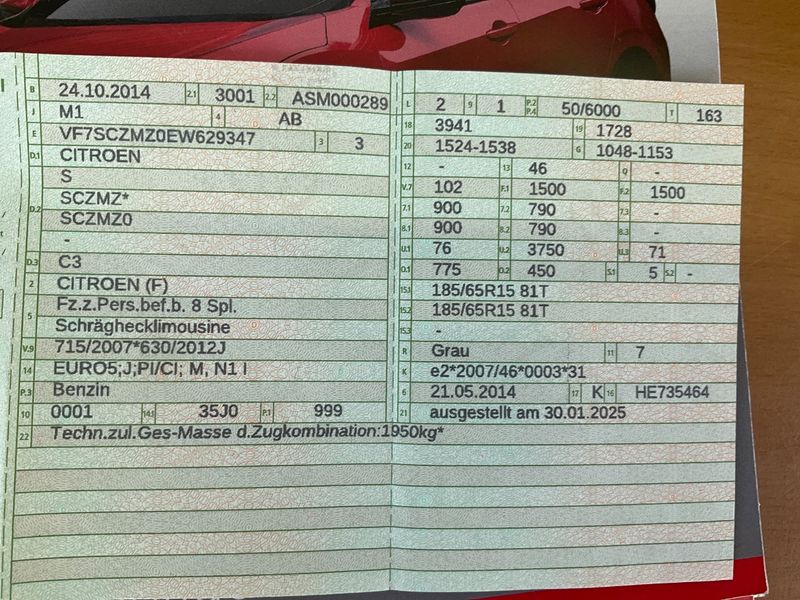 B 24.10.2014 2.1 3001 2.2 ASM000289
J M1 4 AB
E VF7SCZMZ0EW629347 3 3
D.1 CITROEN
S
D.2 SCZMZ*
SCZMZ0
-
D.3 C3
2 CITROEN (F)
5 Fz.z.Pers.bef.b. 8 Spl.
Schräghecklimousine
V.9 715/2007*630/2012J
14 EURO5;J;PI/CI; M, N1 I
P.3 Benzin
10 0001 14.1 35J0 P.1 999
22 Techn.zul.Ges-Masse d.Zugkombination:1950kg*
L 2 9 1 P.2 P.4 50/6000 T 163
18 3941 19 1728
20 1524-1538 G 1048-1153
12 - 13 46 Q -
V.7 102 F.1 1500 F.2 1500
7.1 900 7.2 790 7.3 -
8.1 900 8.2 790 8.3 -
U.1 76 U.2 3750 U.3 71
O.1 775 O.2 450 S.1 5 S.2 -
15.1 185/65R15 81T
15.2 185/65R15 81T
15.3 -
R Grau 11 7
K e2*2007/46*0003*31
6 21.05.2014 17 K 16 HE735464
21 ausgestellt am 30.01.2025